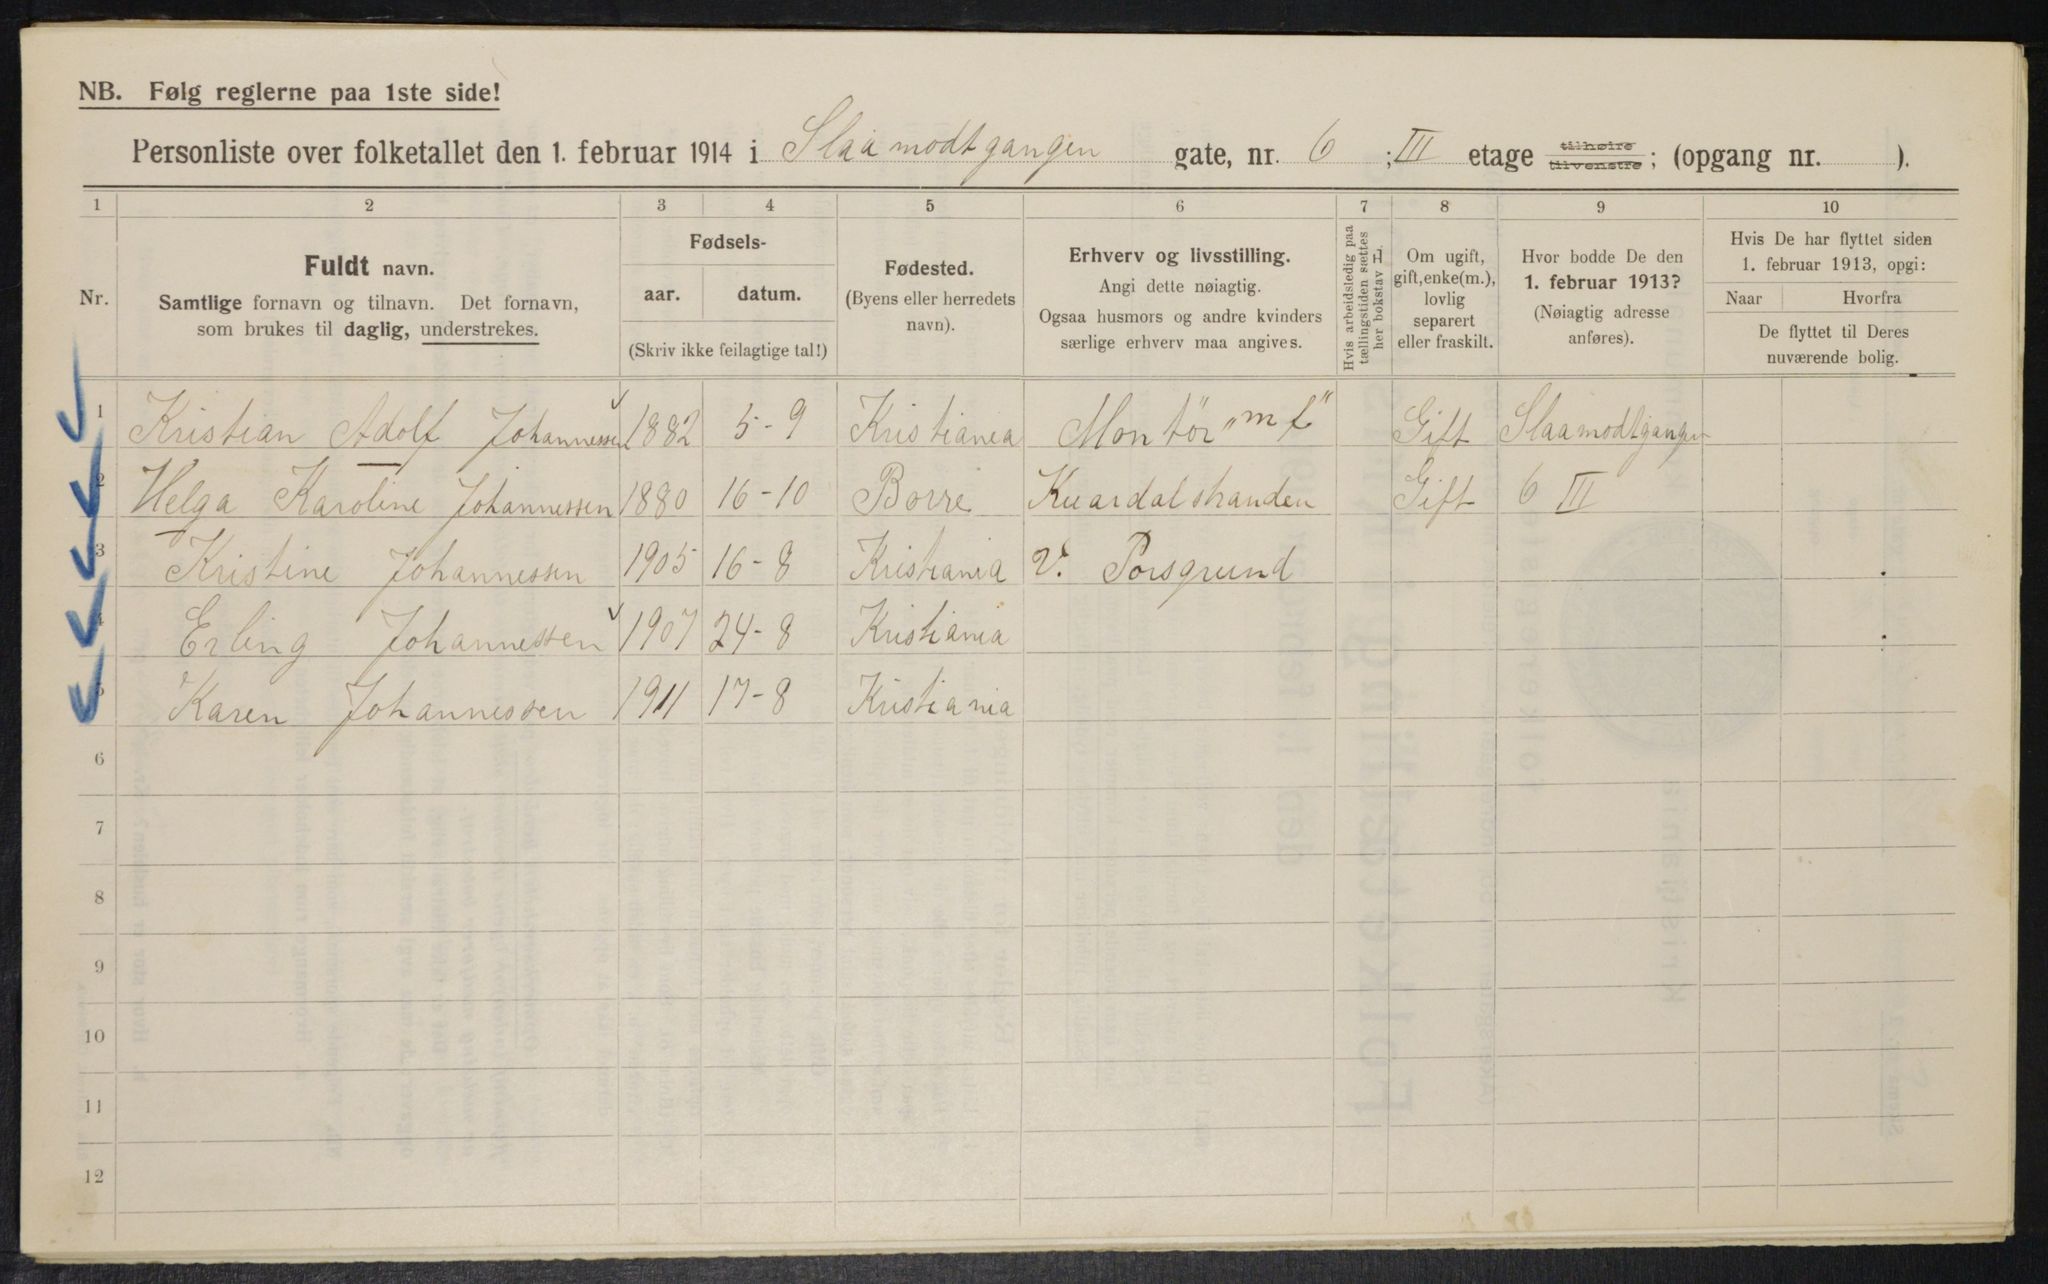 NB. Følg reglerne paa 1ste side!
Personliste over folketallet den 1. februar 1914 i Slaamodtgangen gate, nr. 6 ; III etage tilhøire tilvenstre ; (opgang nr. ).
1 2 3 4 5 6 7 8 9 10
Nr.
Fuldt navn.
Samtlige fornavn og tilnavn. Det fornavn,
som brukes til daglig, understrekes.
Fødsels-
aar. datum.
(Skriv ikke feilagtige tal!)
Fødested.
(Byens eller herredets
navn).
Erhverv og livsstilling.
Angi dette nøiagtig.
Ogsaa husmors og andre kvinders
særlige erhverv maa angives.
Hvis arbeidsledig paa
tællingstiden sættes
her bokstav L.
Om ugift,
gift, enke(m.),
lovlig
separert
eller fraskilt.
Hvor bodde De den
1. februar 1913?
(Nøiagtig adresse
anføres).
Hvis De har flyttet siden
1. februar 1913, opgi:
Naar Hvorfra
De flyttet til Deres
nuværende bolig.
1 Kristian Adolf Johannessen 1882 5-9 Kristiania Montör Gift Slaamodtgangen
2 Helga Karoline Johannessen 1880 16-10 Borre Kuardalstranden Gift 6 III
3 Kristine Johannessen 1905 16-8 Kristiania v. Porsgrund
4 Erling Johannessen 1907 24-8 Kristiania
5 Karen Johannessen 1911 17-8 Kristiania
6
7
8
9
10
11
12